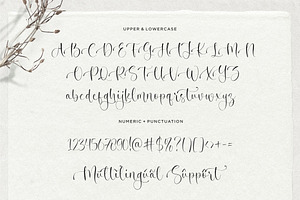 UPPER & LOWERCASE
A B C D E F G H I J K L M N
O P Q R S T U V W X Y Z
abcdefghijklmnopqrstuvwxyz
NUMERIC + PUNCTUATION
1234567890!@#$%?[]{}<>+-=
Multilingual Support